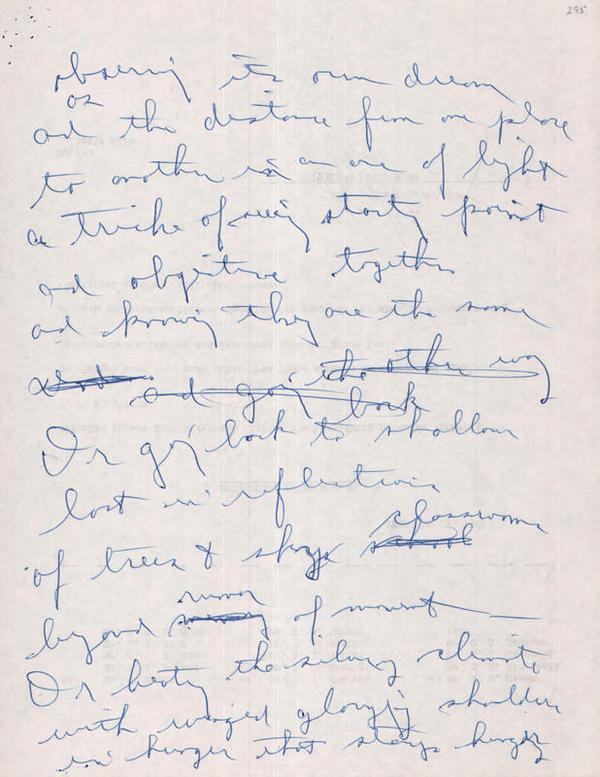 295
observing its own dream
as
and the distance from one place
to another in an arc of light
a trick of seeing starting point
and objective together
and knowing they are the same
and going the other way
back
Or going back to shallows
lost in reflections
classrooms
of trees & sky school
rumor
beyond of moment
Or beating the silvery climate
with winged glowing shoulders
in hunger that stays hungry